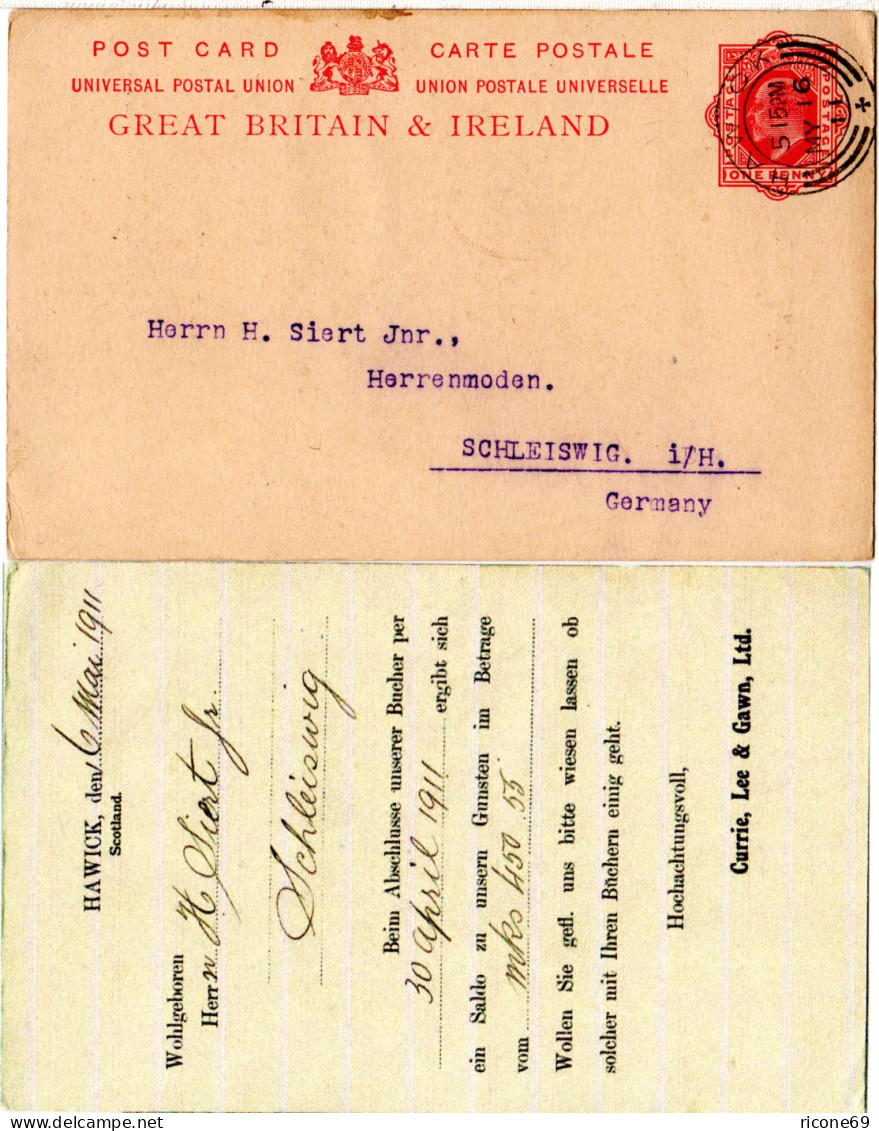 POST CARD CARTE POSTALE
UNIVERSAL POSTAL UNION UNION POSTALE UNIVERSELLE
GREAT BRITAIN & IRELAND
POSTAGE POSTAGE
ONE PENNY
HAWICK
5 15PM
MY 16
11
Herrn H. Siert Jnr.,
Herrenmoden.
SCHLEISWIG. i/H.
Germany
HAWICK, den 16 Mai 1911
Scotland.
Wohlgeboren
Herr n H Siert Jr.
Schleiswig
Beim Abschlusse unserer Bucher per
30 April 1911 ergibt sich
ein Saldo zu unsern Gunsten im Betrage
vom mks 450.55
Wollen Sie gefl. uns bitte wiesen lassen ob
solcher mit Ihren Büchern einig geht.
Hochachtungsvoll,
Currie, Lee & Gawn, Ltd.
delcampe.net
ricone69